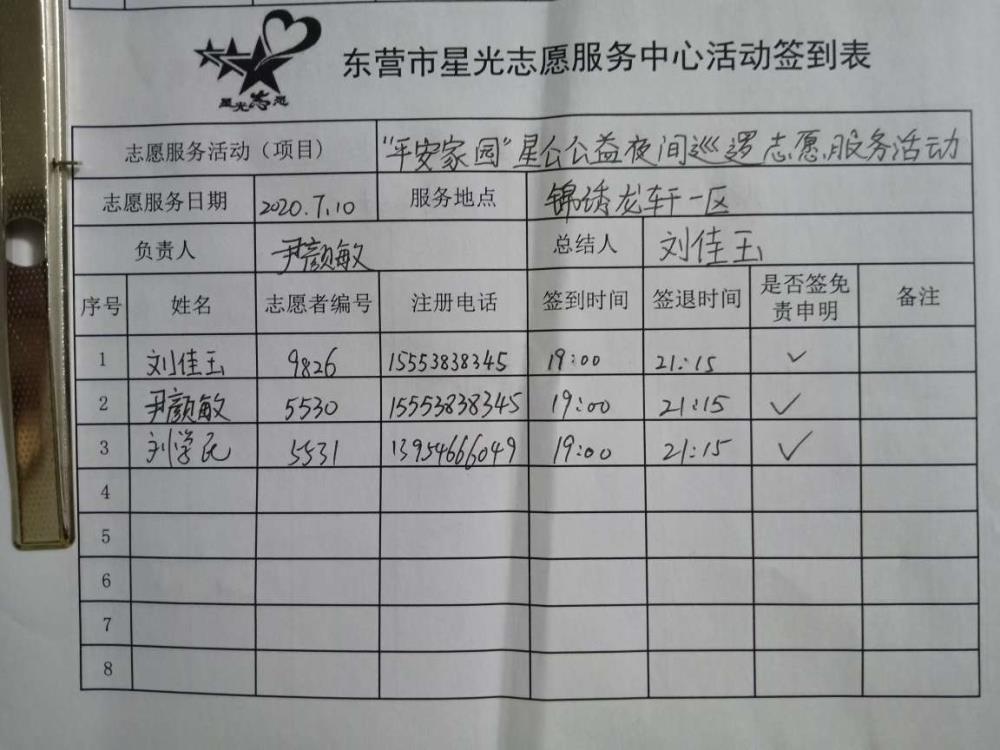 星光志愿
东营市星光志愿服务中心活动签到表
志愿服务活动（项目） “平安家园”星公公益夜间巡逻志愿服务活动
志愿服务日期 2020.7.10 服务地点 锦绣龙轩一区
负责人 尹颜敏 总结人 刘佳玉
序号 姓名 志愿者编号 注册电话 签到时间 签退时间 是否签免责申明 备注
1 刘佳玉 9826 15553838345 19:00 21:15 ✓
2 尹颜敏 5530 15553838345 19:00 21:15 ✓
3 刘学民 5531 13954666049 19:00 21:15 ✓
4
5
6
7
8